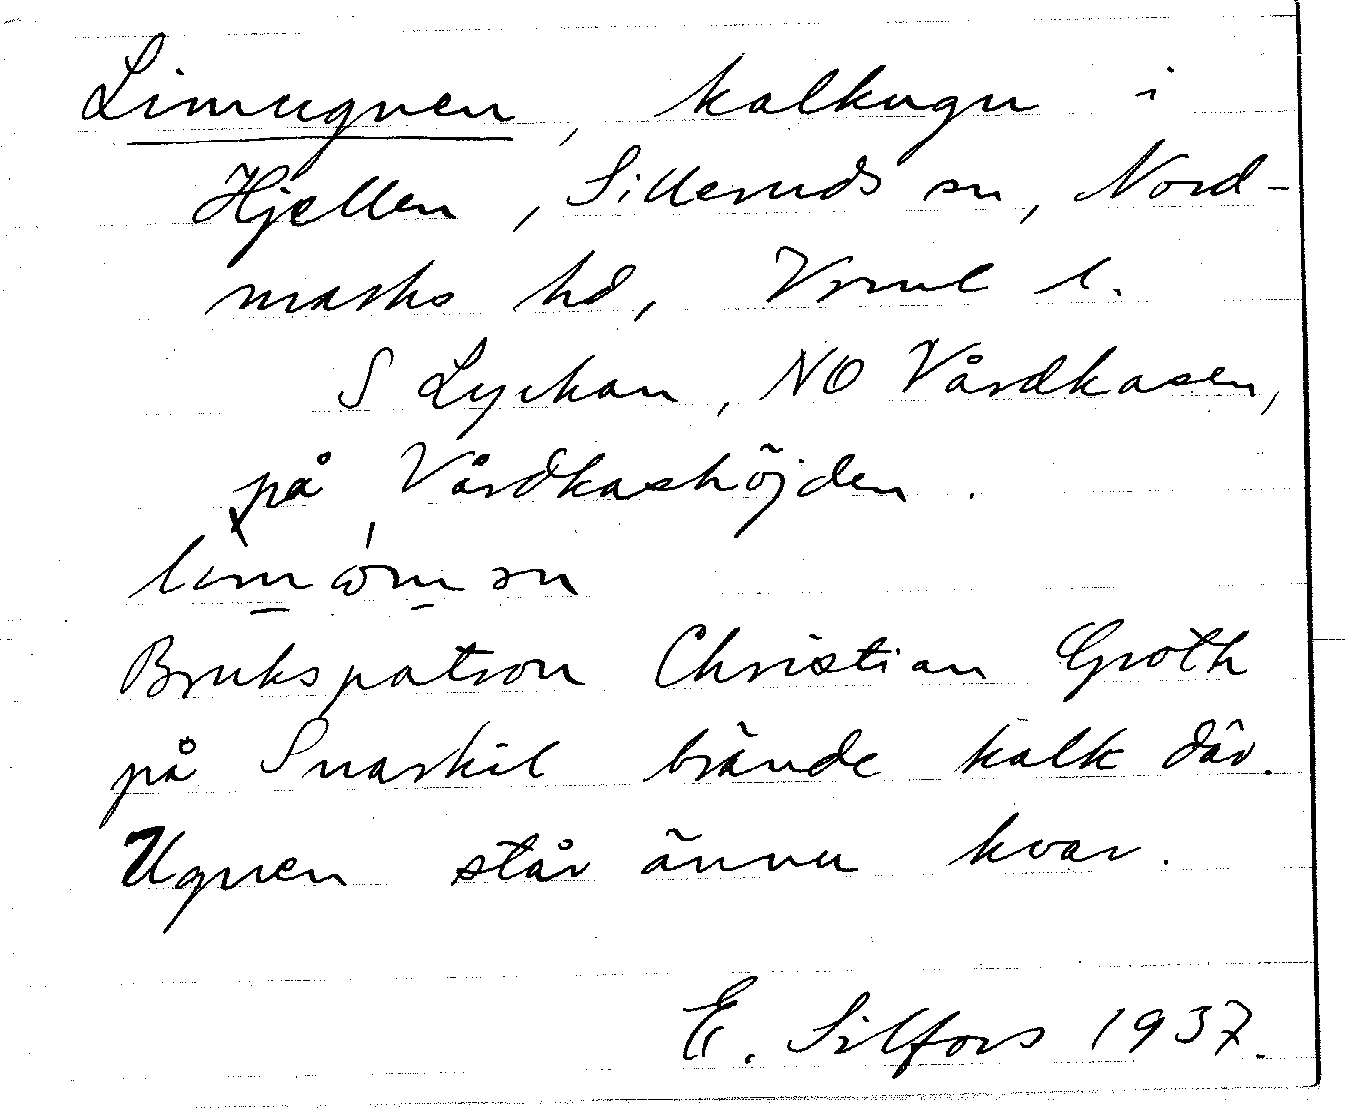 Limugnen, kalkugn i
Hjellen, Silleruds sn, Nord-
marks hd, Vrml l.
S Lyckan, NO Vårdkasen,
på Vårdkashöjden.
Brukspatron Christian Groth
på Snarkil brände kalk där.
Ugnen står ännu kvar.
E. Silfors 1937.